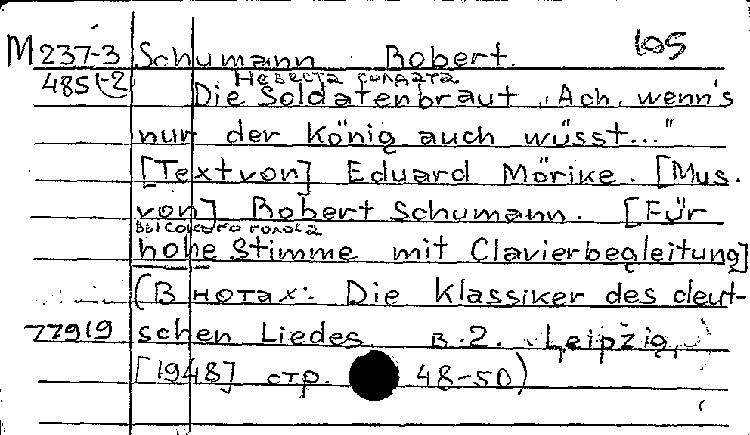 M 237-3 Schumann Robert. 105
485 1-2 Невеста солдата
Die Soldatenbraut „Ach, wenn's
nur der König auch wüsst..."
[Text von] Eduard Mörike. [Mus.
von] Robert Schumann. [Für
высокого голоса
hohe Stimme mit Clavierbegleitung]
(В нотах: Die Klassiker des deut-
77919 schen Liedes B.2. Leipzig,
[1948] стр. 48-50)